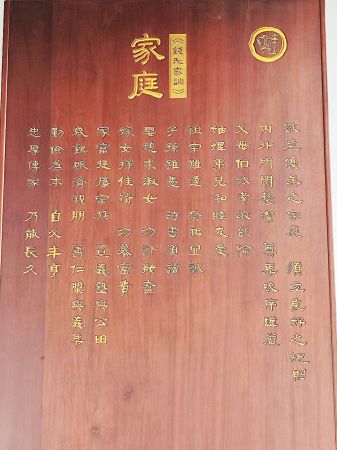 《錢氏家訓》
家庭
欲造優美之家庭 須立良好之規則
內外門閭整潔 尊卑次序謹嚴
父母伯叔孝敬歡愉
妯娌弟兄和睦友愛
祖宗雖遠 祭祀宜誠
子孫雖愚 詩書須讀
娶媳求淑女 勿計妝奩
嫁女擇佳婿 勿慕富貴
家富提攜宗族 置義塾與公田
歲饑賑濟親朋 籌仁漿與義粟
勤儉為本 自必豐亨
忠厚傳家 乃能長久